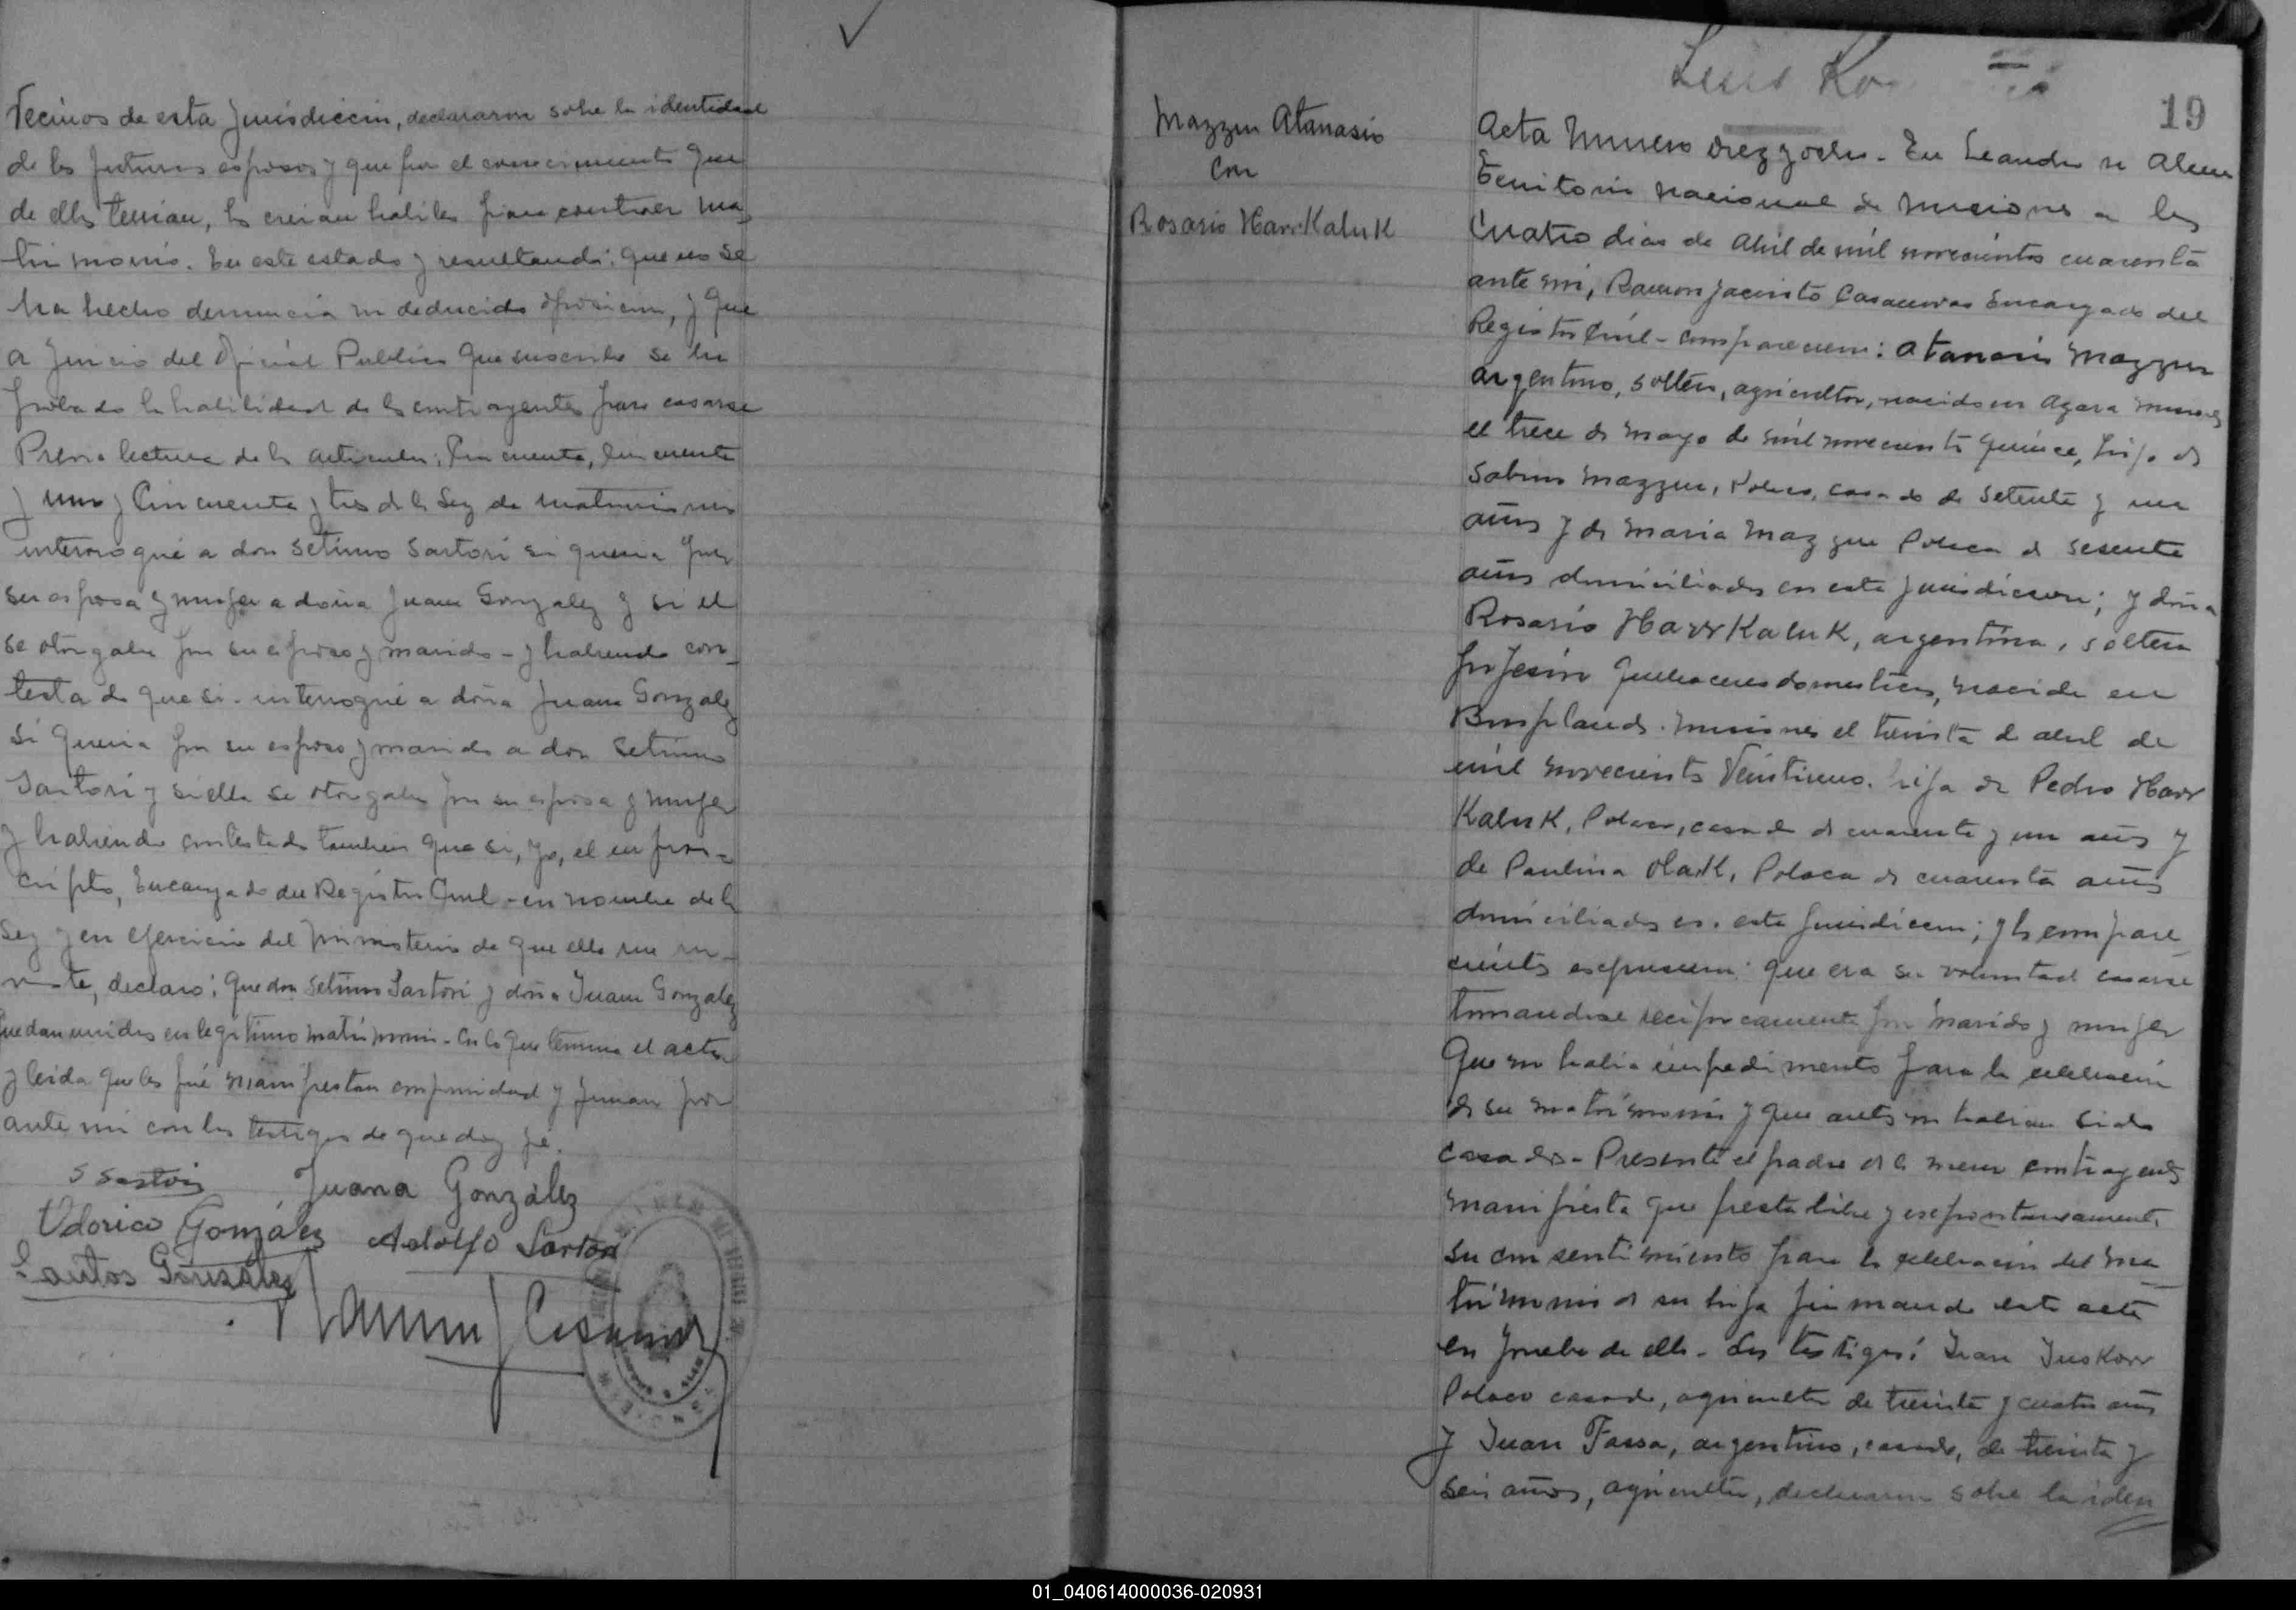 Vecinos de esta Jurisdiccin, declararon sobre la identidad
de los futuros esposos y que por el conocimiento que
de ellos tenian, los creian habiles para contraer ma
trimonio. En este estado y resultando: que no se
ha hecho denuncia ni deducido oposicion, y que
a Juicio del Oficial Publico que suscribe se ha
probado la habilidad de los contrayentes para casarse
Previa lectura de los articulos; Cincuenta, Cincuenta
y uno y Cincuenta y tres de la Ley de matrimonio
interrogué a don Setimo Sartori si queria por
su esposa y mujer a doña Juana Gonzalez y si el
se otorgaba por su esposo y marido - y habiendo con_
testado que si - interrogué a doña Juana Gonzalez
si queria por su esposo y marido a don Setimo
Sartori y si ella se otorgaba por su esposa y mujer
y habiendo contestado tambien que si, yo, el infras-
cripto, Encargado del Registro Civil - en nombre de la
Ley y en ejercicio del ministerio de que ella me in_
viste, declaro: que don Setimo Sartori y doña Juana Gonzalez
quedan unidos en legitimo matrimonio - Con lo que termino el acta
y leida que les fué manifiestan conformidad y firman por
ante mi con los testigos de que doy fé.
S Sartori Juana González
Odorico González Adolfo Sartori
Santos González
Ramon J Casanovas
Luis Ko
19
Mazzur Atanasio
Con
Rosario HarrKaluk
Acta Numero diez y ocho - En Leandro N Alem
Territorio Nacional de Misiones a los
Cuatro dias de Abril de mil novecientos cuarenta
ante mi, Ramon Jacinto Casanovas Encargado del
Registro Civil - comparecieron: Atanasio Mazzur
argentino, soltero, agricultor, nacido en Azara Misiones
el trece de Mayo de mil novecientos quince, hijo de
Mazzur, Polaco, casado de setenta y un
años y de Maria Mazzur Polaca de sesenta
años domiciliados en esta Jurisdiccion; y doña
Rosario HarrKaluk, argentina, soltera
profesión quehaceres domesticos, nacida en
Bonpland. Misiones el treinta de abril de
mil novecientos Veintiuno. hija de Pedro Harr
Kaluk, Polaco, casado de cuarenta y un años y
de Paulina Polaca de cuarenta años
domiciliados en esta Jurisdiccion; y los compare
cientes expresaron: que era su voluntad casarse
tomandose reciprocamente por marido y mujer
Que no habia impedimento para la celebración
de su matrimonio y que antes no habian sido
casados - Presente el padre de la menor contrayente
manifiesta que presta libre y espontaneamente
su consentimiento para la celebracion del ma
trimonio de su hija firmando este acta
en prueba de ello - Los testigos: Juan
Polaco casado, agricultor de treinta y cuatro años
y Juan Fassa, argentino, casado, de treinta y
seis años, agricultor, declararon sobre la iden
01_040614000036-020931